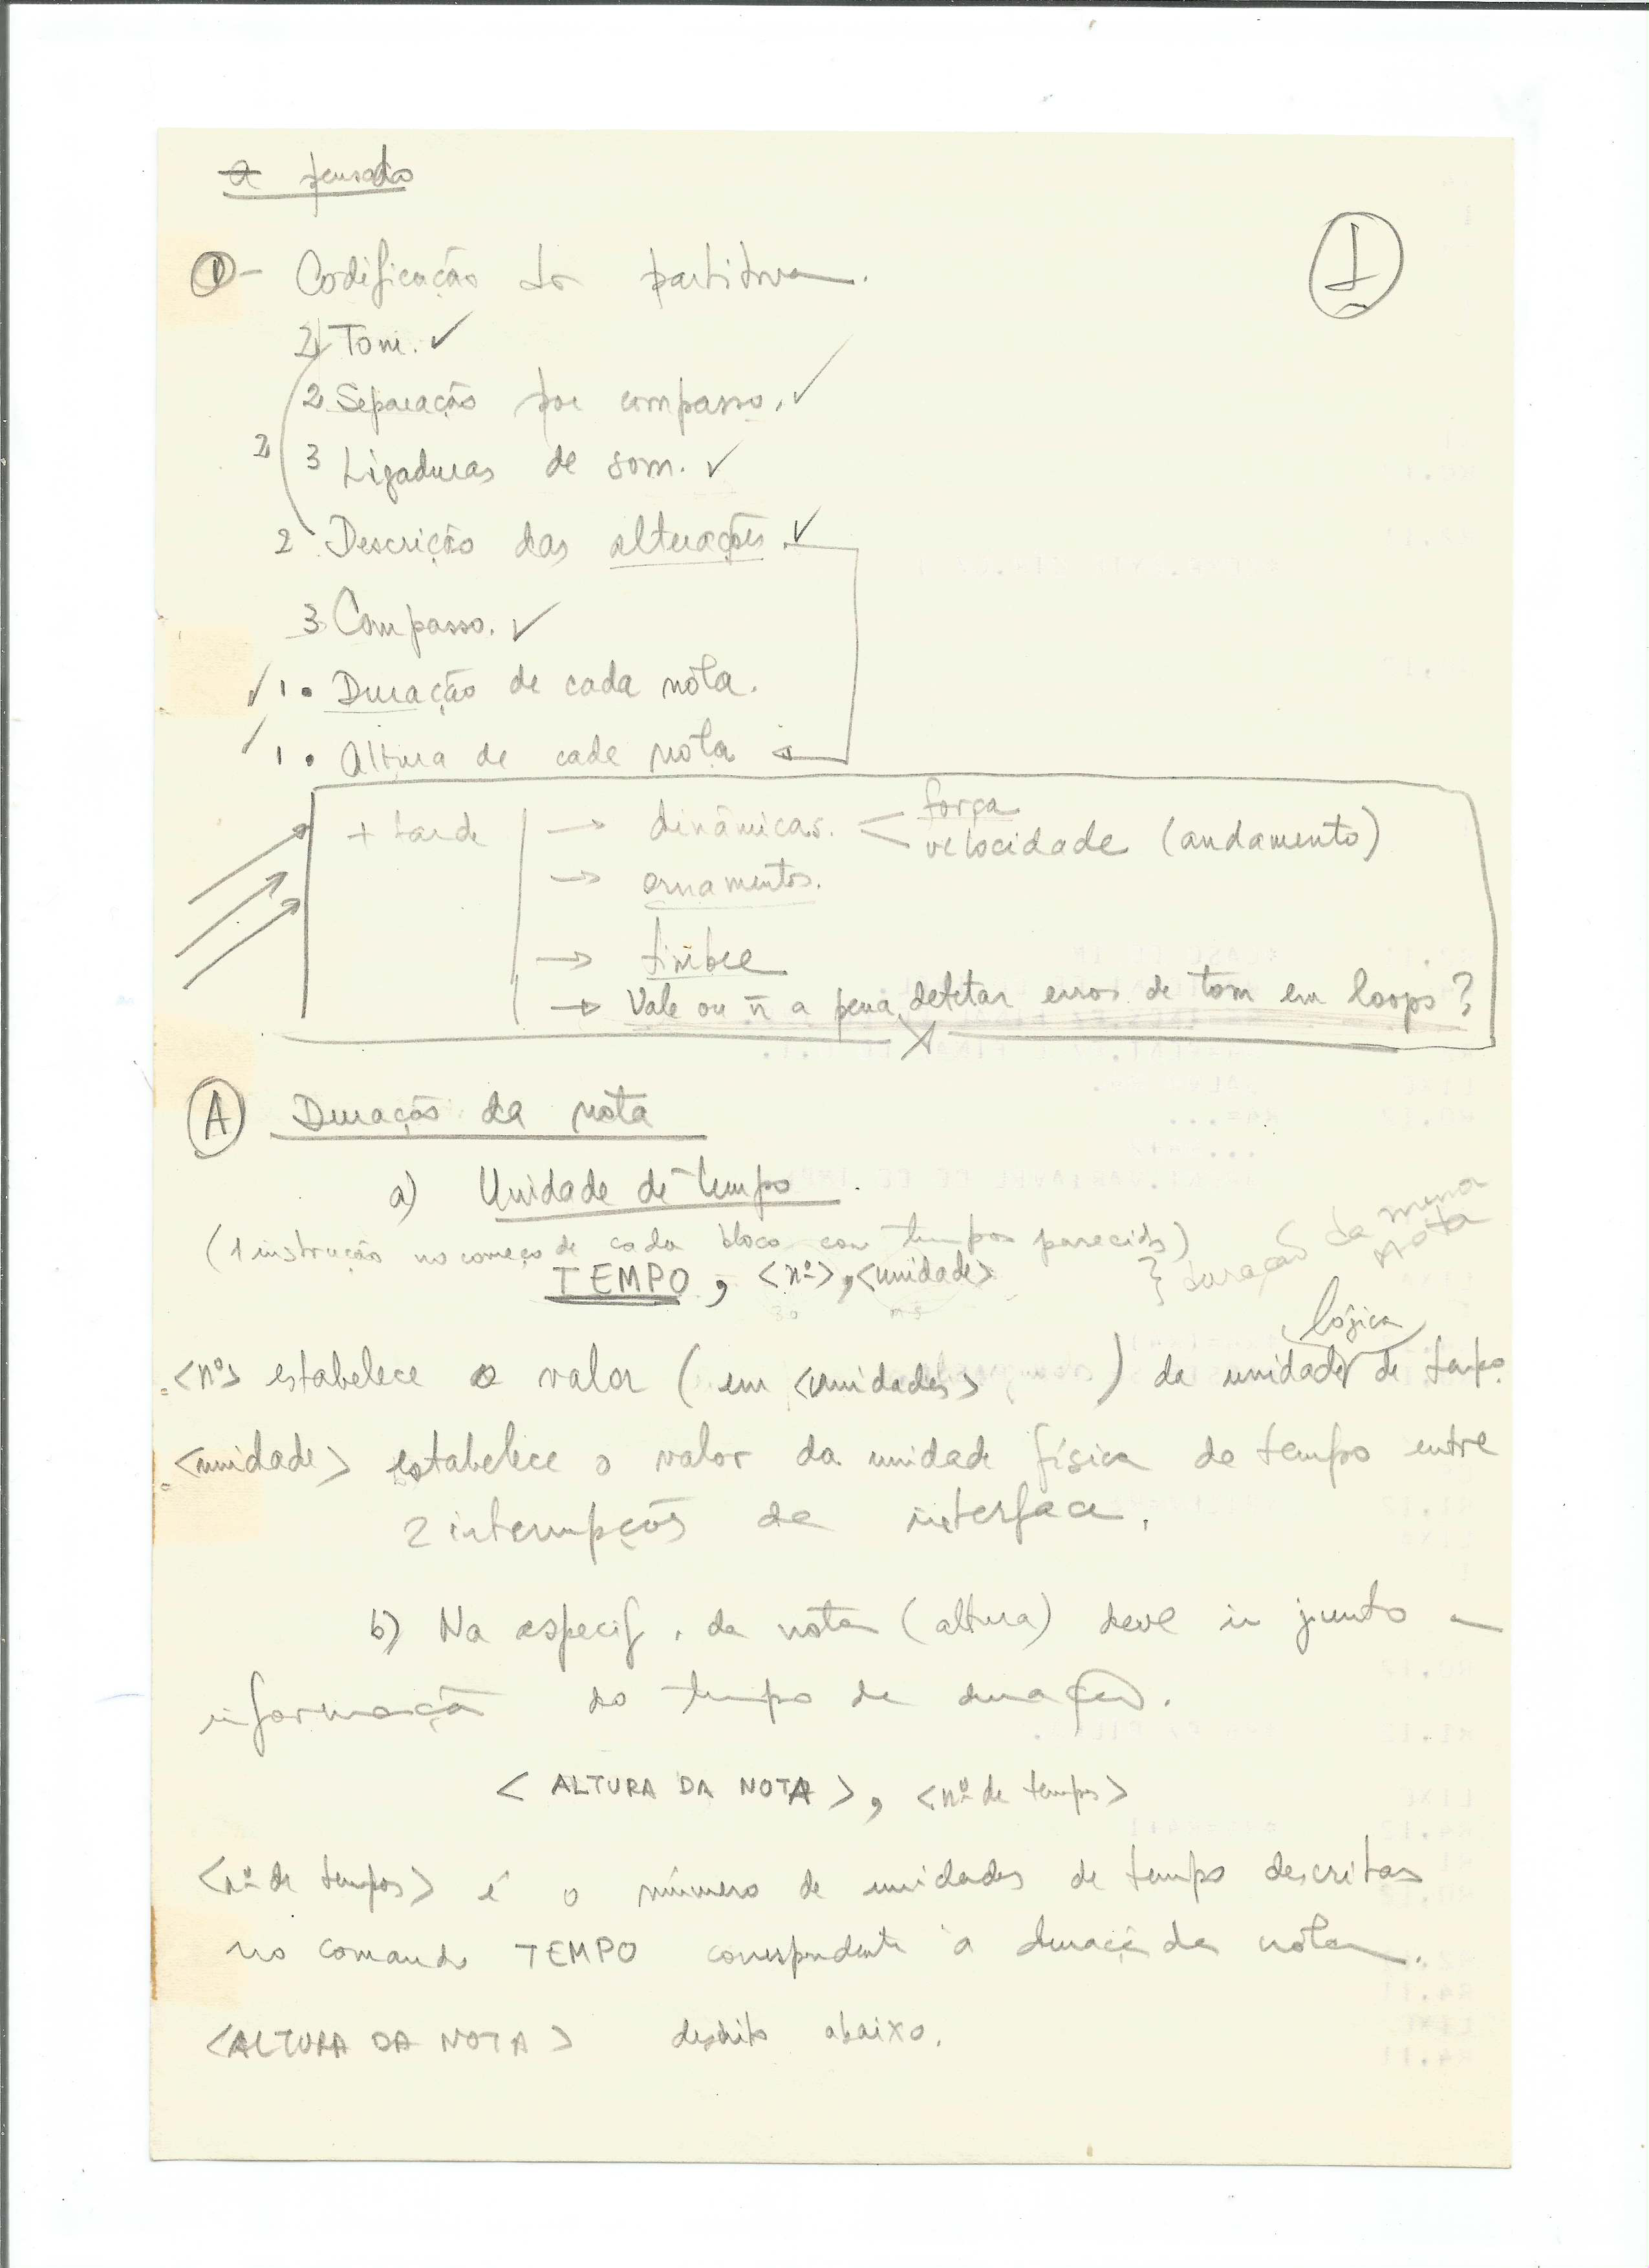 a pensado
1 - Codificação da partitura.
I
2) Tom. ✓
2. Separação por compasso. ✓
2) 3 Ligaduras de som. ✓
2 Descrição das alterações. ✓
3 Compasso. ✓
✓ 1 • Duração de cada nota.
✓ 1 • Altura de cada nota
+ tarde → dinâmicas. < força
velocidade (andamento)
→ ornamentos.
→ timbre
→ Vale ou ñ a pena detetar erros de tom em loops?
A Duração da nota
a) Unidade de tempo.
(1 instrução no começo de cada bloco com tempos parecidos)
TEMPO, <nº>, <unidade> } duração da nota
30 ms
lógica
<nº> estabelece o valor (em <unidades> ) da unidade de tempo.
<unidade> estabelece o valor da unidade física de tempo entre
2 interrupções da interface.
b) Na especif. da nota (altura) deve ir junto a
informação do tempo de duração.
< ALTURA DA NOTA >, <nº de tempos>
<nº de tempos> é o número de unidades de tempo descritas
no comando TEMPO correspondente à duração da nota.
<ALTURA DA NOTA> descrito abaixo.